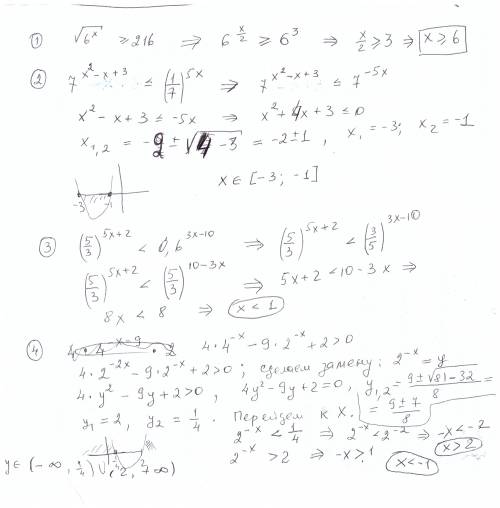 ① √6^x ≥ 216 ⇒ 6^(x/2) ≥ 6^3 ⇒ x/2 ≥ 3 ⇒ x ≥ 6
② 7^(x²-x+3) ≤ (1/7)^(5x) ⇒ 7^(x²-x+3) ≤ 7^(-5x)
x² - x + 3 ≤ -5x ⇒ x² + 4x + 3 ≤ 0
x₁,₂ = -2 ± √(4-3) = -2 ± 1, x₁ = -3; x₂ = -1
-3 -1 x ∈ [-3; -1]
③ (5/3)^(5x+2) < 0,6^(3x-10) ⇒ (5/3)^(5x+2) < (3/5)^(3x-10)
(5/3)^(5x+2) < (5/3)^(10-3x) ⇒ 5x+2 < 10-3x ⇒
8x < 8 ⇒ x < 1
④ 4·4^(-x) - 9·2^(-x) + 2 > 0
4·2^(-2x) - 9·2^(-x) + 2 > 0; сделаем замену: 2^(-x) = y
4·y² - 9y + 2 > 0, 4y² - 9y + 2 = 0, y₁,₂ = (9 ± √(81-32))/8 =
= (9 ± 7)/8
y₁ = 2, y₂ = 1/4. Перейдем к x.
2^(-x) < 1/4 ⇒ 2^(-x) < 2^(-2) ⇒ -x < -2
x > 2
1/4 2
y ∈ (-∞, 1/4) ∪ (2, +∞) 2^(-x) > 2 ⇒ -x > 1 x < -1